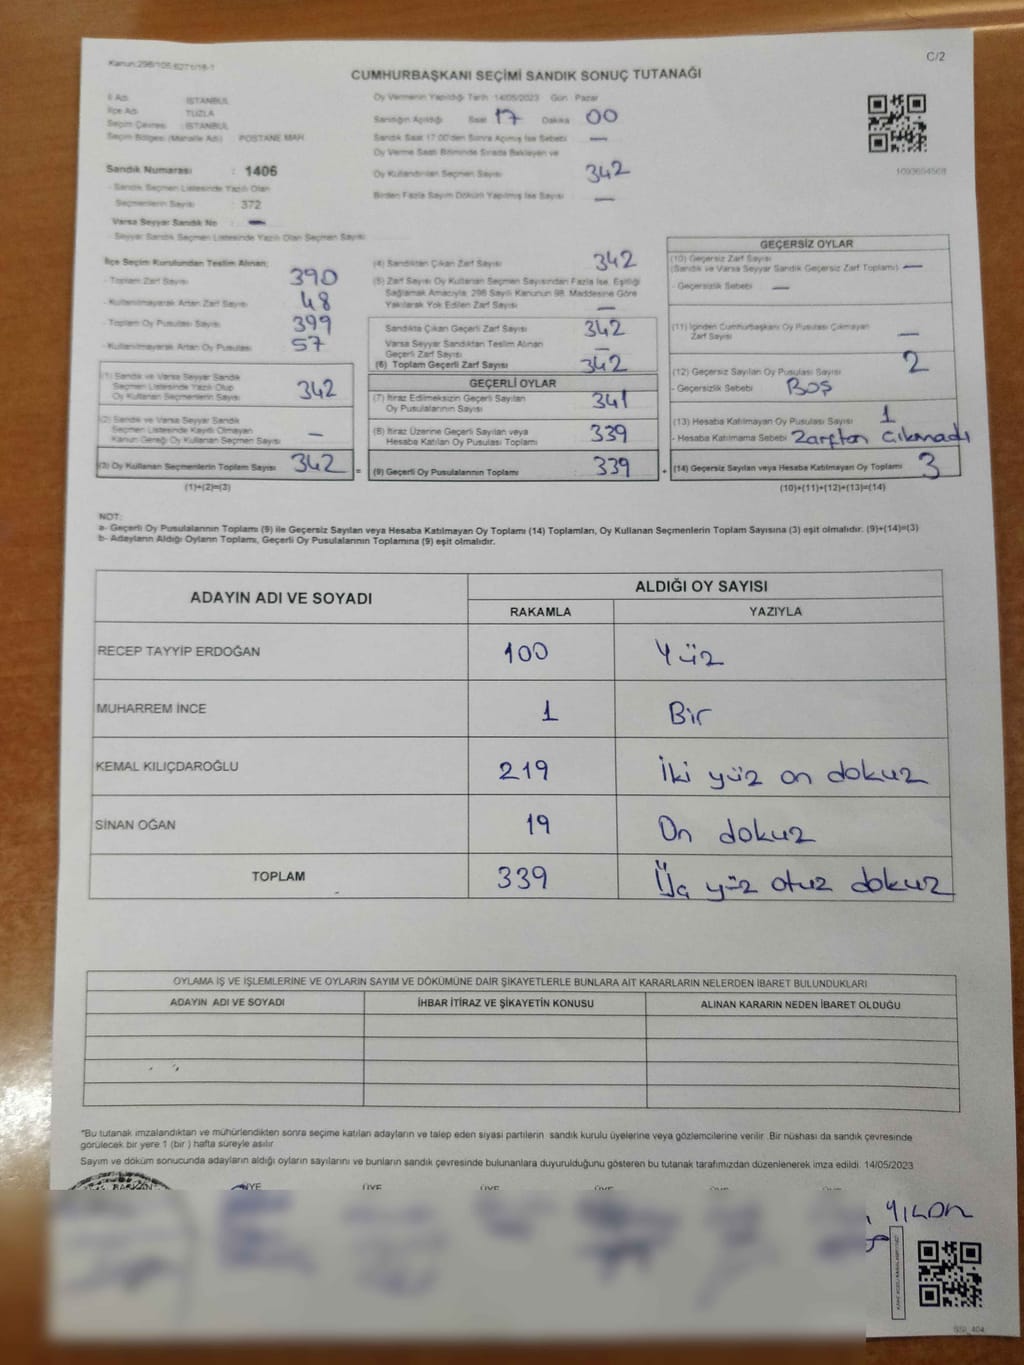 Kanun:298/105-6271/16-1
C/2
CUMHURBAŞKANI SEÇİMİ SANDIK SONUÇ TUTANAĞI
İl Adı : İSTANBUL
İlçe Adı : TUZLA
Seçim Çevresi : İSTANBUL
Seçim Bölgesi (Mahalle Adı) : POSTANE MAH.
Sandık Numarası : 1406
- Sandık Seçmen Listesinde Yazılı Olan
Seçmenlerin Sayısı : 372
Varsa Seyyar Sandık No : —
- Seyyar Sandık Seçmen Listesinde Yazılı Olan Seçmen Sayısı
Oy Vermenin Yapıldığı Tarih :14/05/2023 Gün : Pazar
Sandığın Açıldığı Saat 17 Dakika 00
Sandık Saat 17:00'den Sonra Açılmış İse Sebebi : —
Oy Verme Saati Bitiminde Sırada Bekleyen ve
Oy Kullandırılan Seçmen Sayısı : 342
Birden Fazla Sayım Dökümü Yapılmış İse Sayısı : —
1093694568
İlçe Seçim Kurulundan Teslim Alınan;
- Toplam Zarf Sayısı : 390
- Kullanılmayarak Artan Zarf Sayısı : 48
- Toplam Oy Pusulası Sayısı : 399
- Kullanılmayarak Artan Oy Pusulası : 57
(1) Sandık ve Varsa Seyyar Sandık
Seçmen Listesinde Yazılı Olup
Oy Kullanan Seçmenlerin Sayısı 342
(2) Sandık ve Varsa Seyyar Sandık
Seçmen Listesinde Kayıtlı Olmayan
Kanun Gereği Oy Kullanan Seçmen Sayısı —
(3) Oy Kullanan Seçmenlerin Toplam Sayısı 342 =
(1)+(2)=(3)
(4) Sandıktan Çıkan Zarf Sayısı : 342
(5) Zarf Sayısı Oy Kullanan Seçmen Sayısından Fazla İse, Eşitliği
Sağlamak Amacıyla, 298 Sayılı Kanunun 98. Maddesine Göre
Yakılarak Yok Edilen Zarf Sayısı : —
Sandıkta Çıkan Geçerli Zarf Sayısı : 342
Varsa Seyyar Sandıktan Teslim Alınan
Geçerli Zarf Sayısı : —
(6) Toplam Geçerli Zarf Sayısı : 342
GEÇERLİ OYLAR
(7) İtiraz Edilmeksizin Geçerli Sayılan
Oy Pusulalarının Sayısı : 341
(8) İtiraz Üzerine Geçerli Sayılan veya
Hesaba Katılan Oy Pusulası Toplamı : 339
(9) Geçerli Oy Pusulalarının Toplamı : 339 +
GEÇERSİZ OYLAR
(10) Geçersiz Zarf Sayısı
(Sandık ve Varsa Seyyar Sandık Geçersiz Zarf Toplamı) : —
- Geçersizlik Sebebi : —
(11) İçinden Cumhurbaşkanı Oy Pusulası Çıkmayan
Zarf Sayısı : —
(12) Geçersiz Sayılan Oy Pusulası Sayısı : 2
- Geçersizlik Sebebi : Boş
(13) Hesaba Katılmayan Oy Pusulası Sayısı : 1
- Hesaba Katılmama Sebebi : Zarftan çıkmadı
(14) Geçersiz Sayılan veya Hesaba Katılmayan Oy Toplamı : 3
(10)+(11)+(12)+(13)=(14)
NOT:
a- Geçerli Oy Pusulalarının Toplamı (9) ile Geçersiz Sayılan veya Hesaba Katılmayan Oy Toplamı (14) Toplamları, Oy Kullanan Seçmenlerin Toplam Sayısına (3) eşit olmalıdır. (9)+(14)=(3)
b- Adayların Aldığı Oyların Toplamı, Geçerli Oy Pusulalarının Toplamına (9) eşit olmalıdır.
ADAYIN ADI VE SOYADI ALDIĞI OY SAYISI
RAKAMLA YAZIYLA
RECEP TAYYİP ERDOĞAN 100 Yüz
MUHARREM İNCE 1 Bir
KEMAL KILIÇDAROĞLU 219 İki yüz on dokuz
SİNAN OĞAN 19 On dokuz
TOPLAM 339 Üç yüz otuz dokuz
OYLAMA İŞ VE İŞLEMLERİNE VE OYLARIN SAYIM VE DÖKÜMÜNE DAİR ŞİKAYETLERLE BUNLARA AİT KARARLARIN NELERDEN İBARET BULUNDUKLARI
ADAYIN ADI VE SOYADI İHBAR İTİRAZ VE ŞİKAYETİN KONUSU ALINAN KARARIN NEDEN İBARET OLDUĞU
*Bu tutanak imzalandıktan ve mühürlendikten sonra seçime katılan adayların ve talep eden siyasi partilerin sandık kurulu üyelerine veya gözlemcilerine verilir .Bir nüshası da sandık çevresinde
görülecek bir yere 1 (bir ) hafta süreyle asılır
Sayım ve döküm sonucunda adayların aldığı oyların sayılarını ve bunların sandık çevresinde bulunanlara duyurulduğunu gösteren bu tutanak tarafımızdan düzenlenerek imza edildi. 14/05/2023
ÜYE ÜYE ÜYE